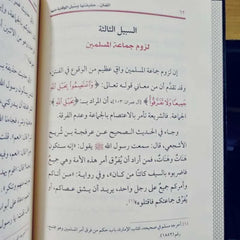 ٦٢
السبيل الثالثة
لزوم جماعة المسلمين
إن لزوم جماعة المسلمين واقٍ عظيم من الوقوع في الفتن،
وإن من معاني قوله تعالى: ﴿وَاعْتَصِمُوا بِحَبْلِ اللَّهِ
جَمِيعًا وَلَا تَفَرَّقُوا﴾ [آل عمران: ١٠٣]
الجماعة، فالشريعة تأمر بالاعتصام بالجماعة وعدم الفرقة.
وجاء في الحديث الصحيح عن عرفجة بن شريح
الأشجعي، قال: سمعت رسول الله ﷺ يقول: «إنه ستكون
هَنَات وهَنَات، فمن أراد أن يُفَرِّق أمر هذه الأمة وهي جميع
فاضربوه بالسيف كائناً من كان»، وفي رواية:
وأمركم جميعٌ على رجل واحد، يريد أن يشق عصاكم، أو
يُفَرِّق جماعتكم فاقتلوه»(١)
(١) أخرجه مسلم في صحيحه، كتاب الإمارة، باب حكم من فرق أمر المسلمين وهو مجتمع
رقم (١٨٥٢)